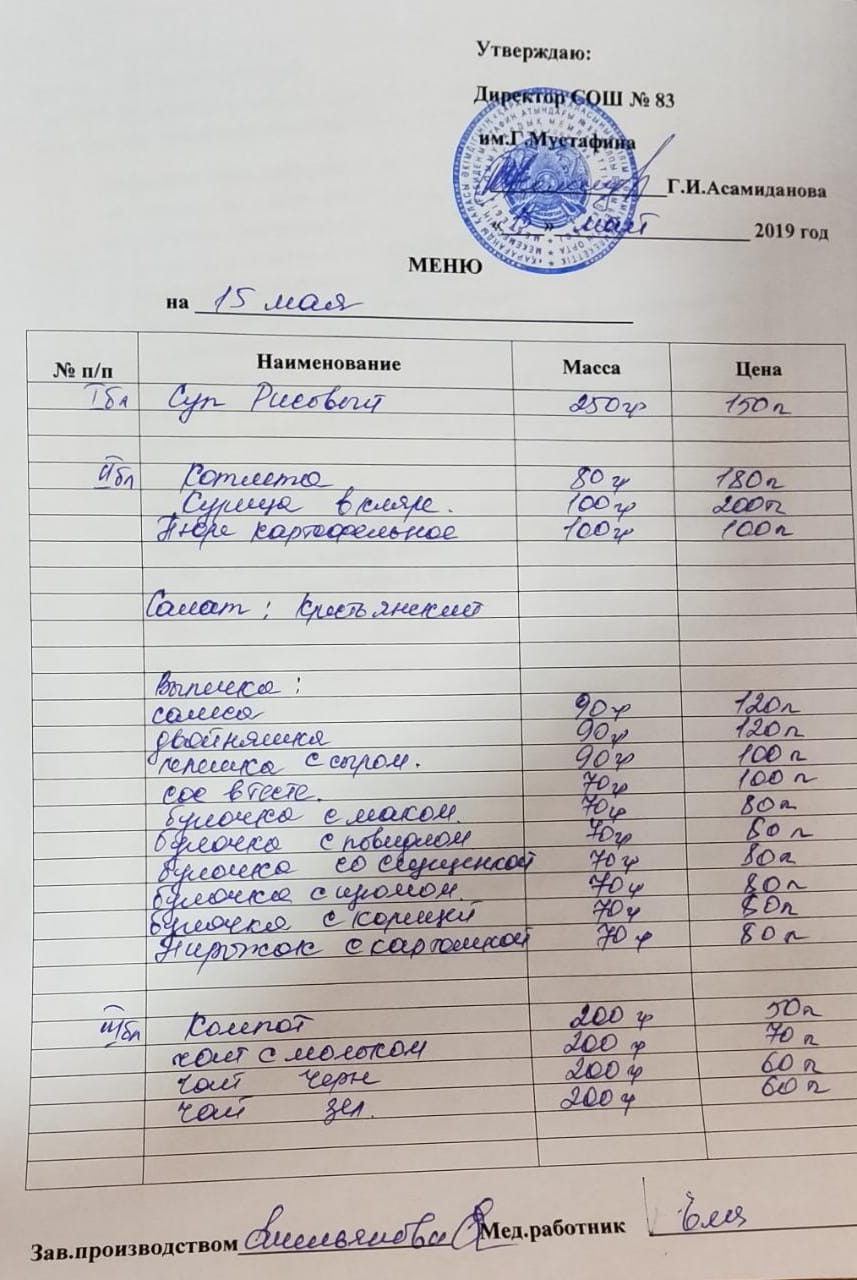 Утверждаю:
Директор СОШ № 83
им.Г.Мустафина
Г.И.Асамиданова
« 15 » май 2019 год
МЕНЮ
на 15 мая
№ п/п Наименование Масса Цена
I бл Суп Рисовый 250гр 150т
II бл Котлета 80гр 180т
Курица в кляре. 100гр 200т
Пюре картофельное 100гр 100т
Салат: Крестьянский
Выпечка:
самса 90гр 120т
двойняшка 90гр 120т
лепешка с сыром. 90гр 100т
сос в тесте. 70гр 100т
булочка с маком. 70гр 80т
булочка с повидлом 70гр 80т
булочка со сгущенкой 70гр 80т
булочка с изюмом. 70гр 80т
булочка с корицей 70гр 80т
Пирожок с картошкой 70гр 80т
III бл Компот 200гр 50т
чай с молоком 200гр 70т
чай черн 200гр 60т
чай зел. 200гр 60т
Зав.производством Мед.работник